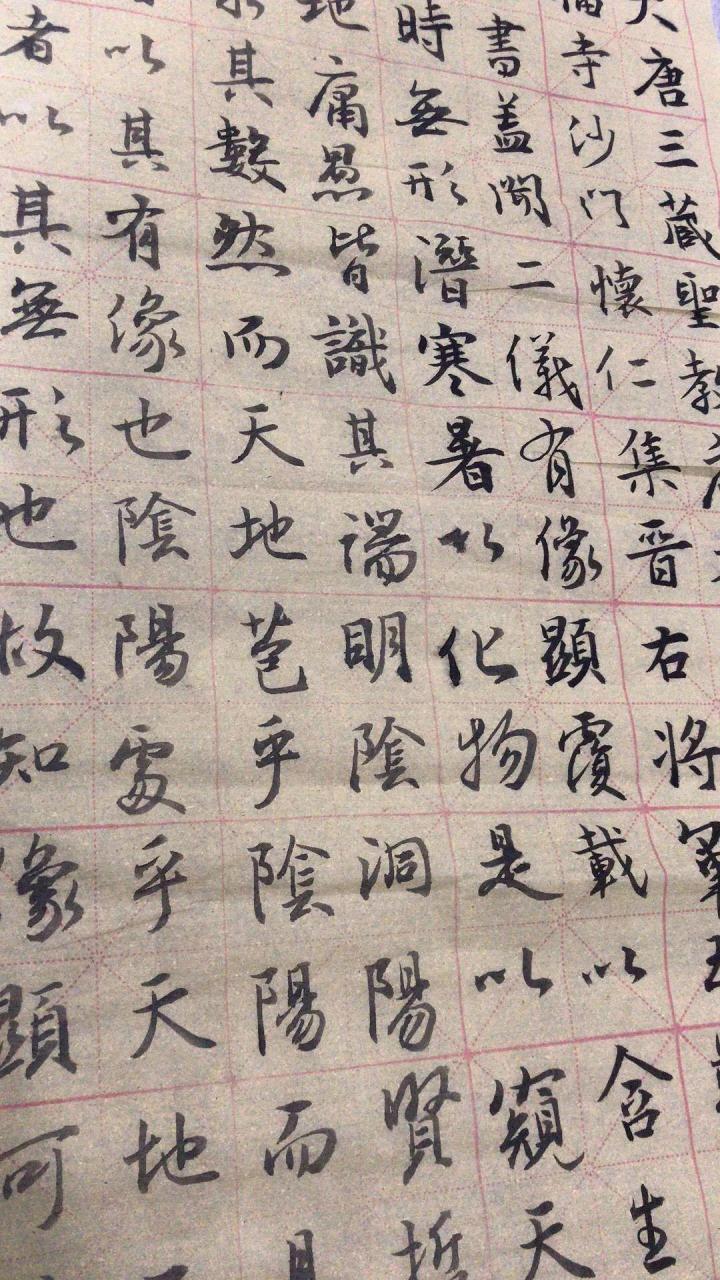 大唐三藏聖教序
福寺沙門懷仁集晉右將軍王
書蓋聞二儀有像顯覆載以含生
時無形潛寒暑以化物是以窺天
地庸愚皆識其端明陰洞陽賢哲
其數然而天地苞乎陰陽而易
以其有像也陰陽處乎天地而
者以其無形也故知像顯可